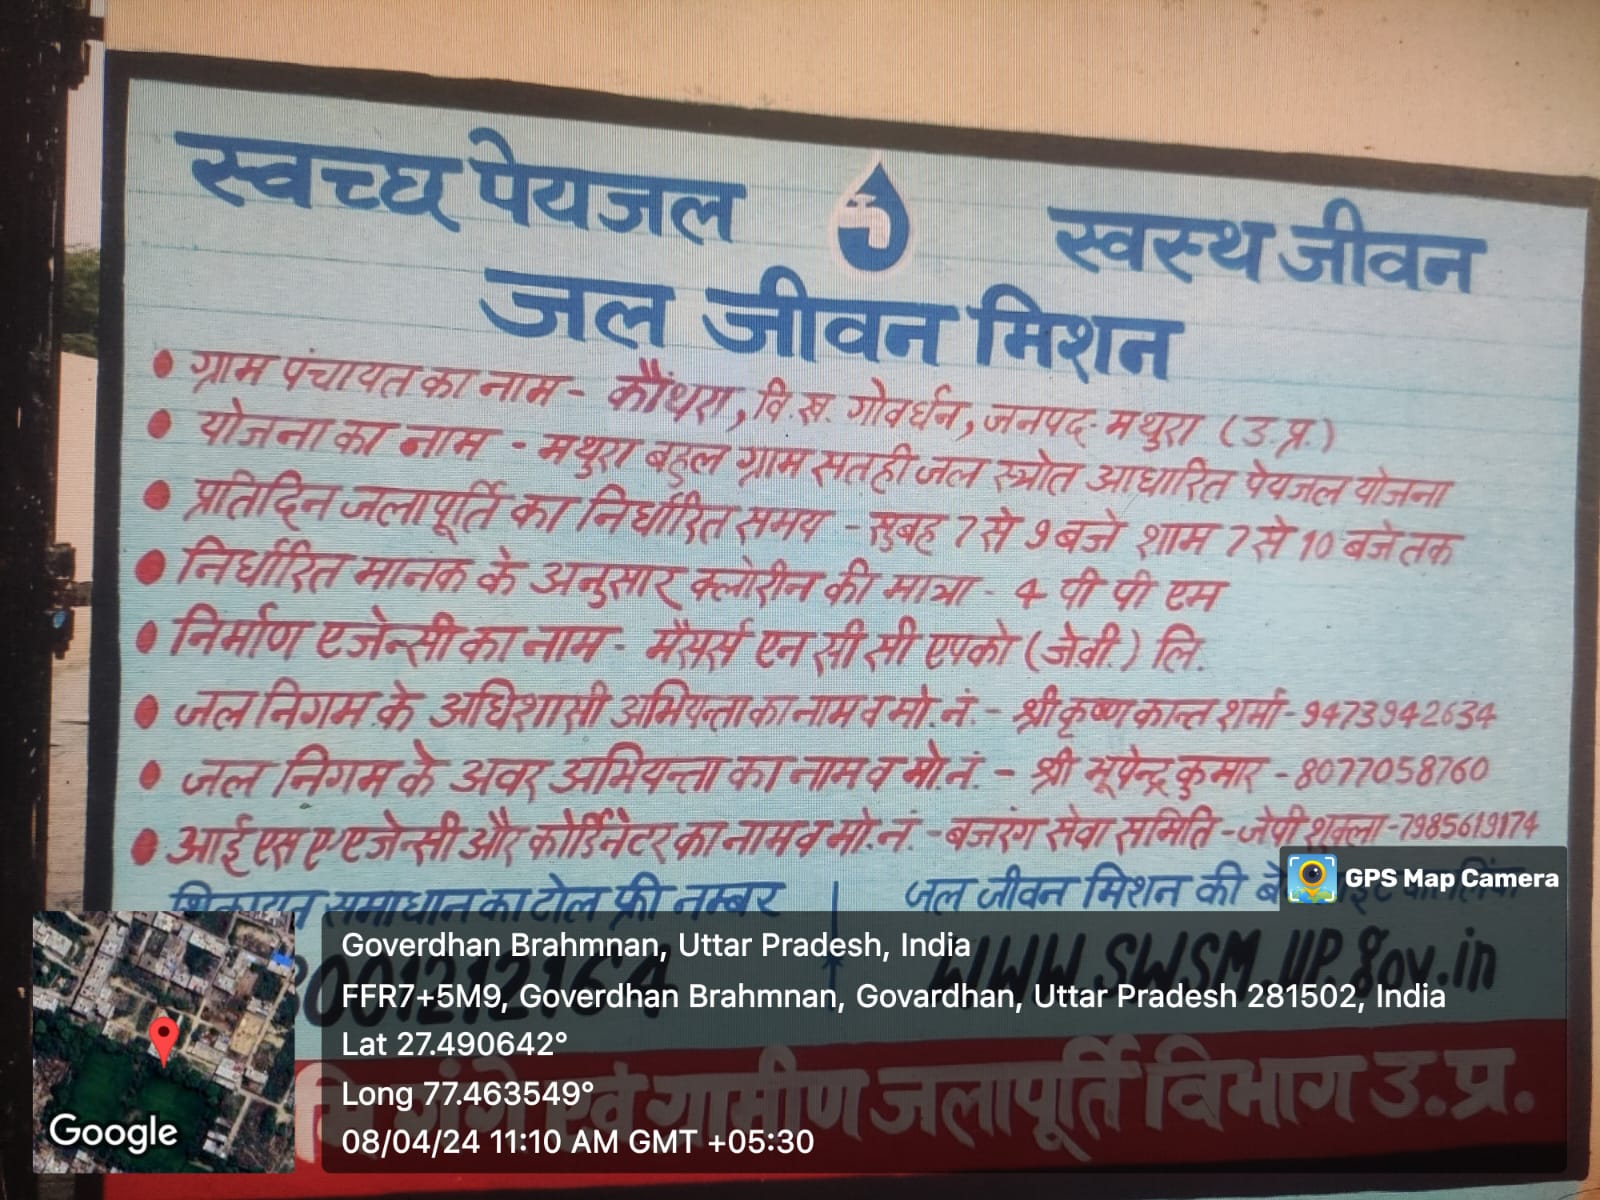 स्वच्छ पेयजल स्वस्थ जीवन
जल जीवन मिशन
• ग्राम पंचायत का नाम - कौंथरा, वि.ख. गोवर्धन, जनपद- मथुरा (उ.प्र.)
• योजना का नाम - मथुरा बहुल ग्राम सतही जल स्त्रोत आधारित पेयजल योजना
• प्रतिदिन जलापूर्ति का निर्धारित समय - सुबह 7 से 9 बजे शाम 7 से 10 बजे तक
• निर्धारित मानक के अनुसार क्लोरीन की मात्रा - 4 पी पी एम
• निर्माण एजेन्सी का नाम - मैसर्स एन सी सी एपको (जेवी.) लि.
• जल निगम के अधिशासी अभियन्ता का नाम व मो. नं. - श्री कृष्ण कान्त शर्मा - 9473942634
• जल निगम के अवर अभियन्ता का नाम व मो.नं. - श्री भूपेन्द्र कुमार - 8077058760
• आई एस ए एजेन्सी और कोर्डिनेटर का नाम व मो.नं. - बजरंग सेवा समिति - जेपी शुक्ला - 7985619174
शिकायत समाधान का टोल फ्री नम्बर
जल जीवन मिशन की
www.swsm.up.gov.in
एवं ग्रामीण जलापूर्ति विभाग उ.प्र.
GPS Map Camera
Goverdhan Brahmnan, Uttar Pradesh, India
FFR7+5M9, Goverdhan Brahmnan, Govardhan, Uttar Pradesh 281502, India
Lat 27.490642°
Long 77.463549°
08/04/24 11:10 AM GMT +05:30
Google